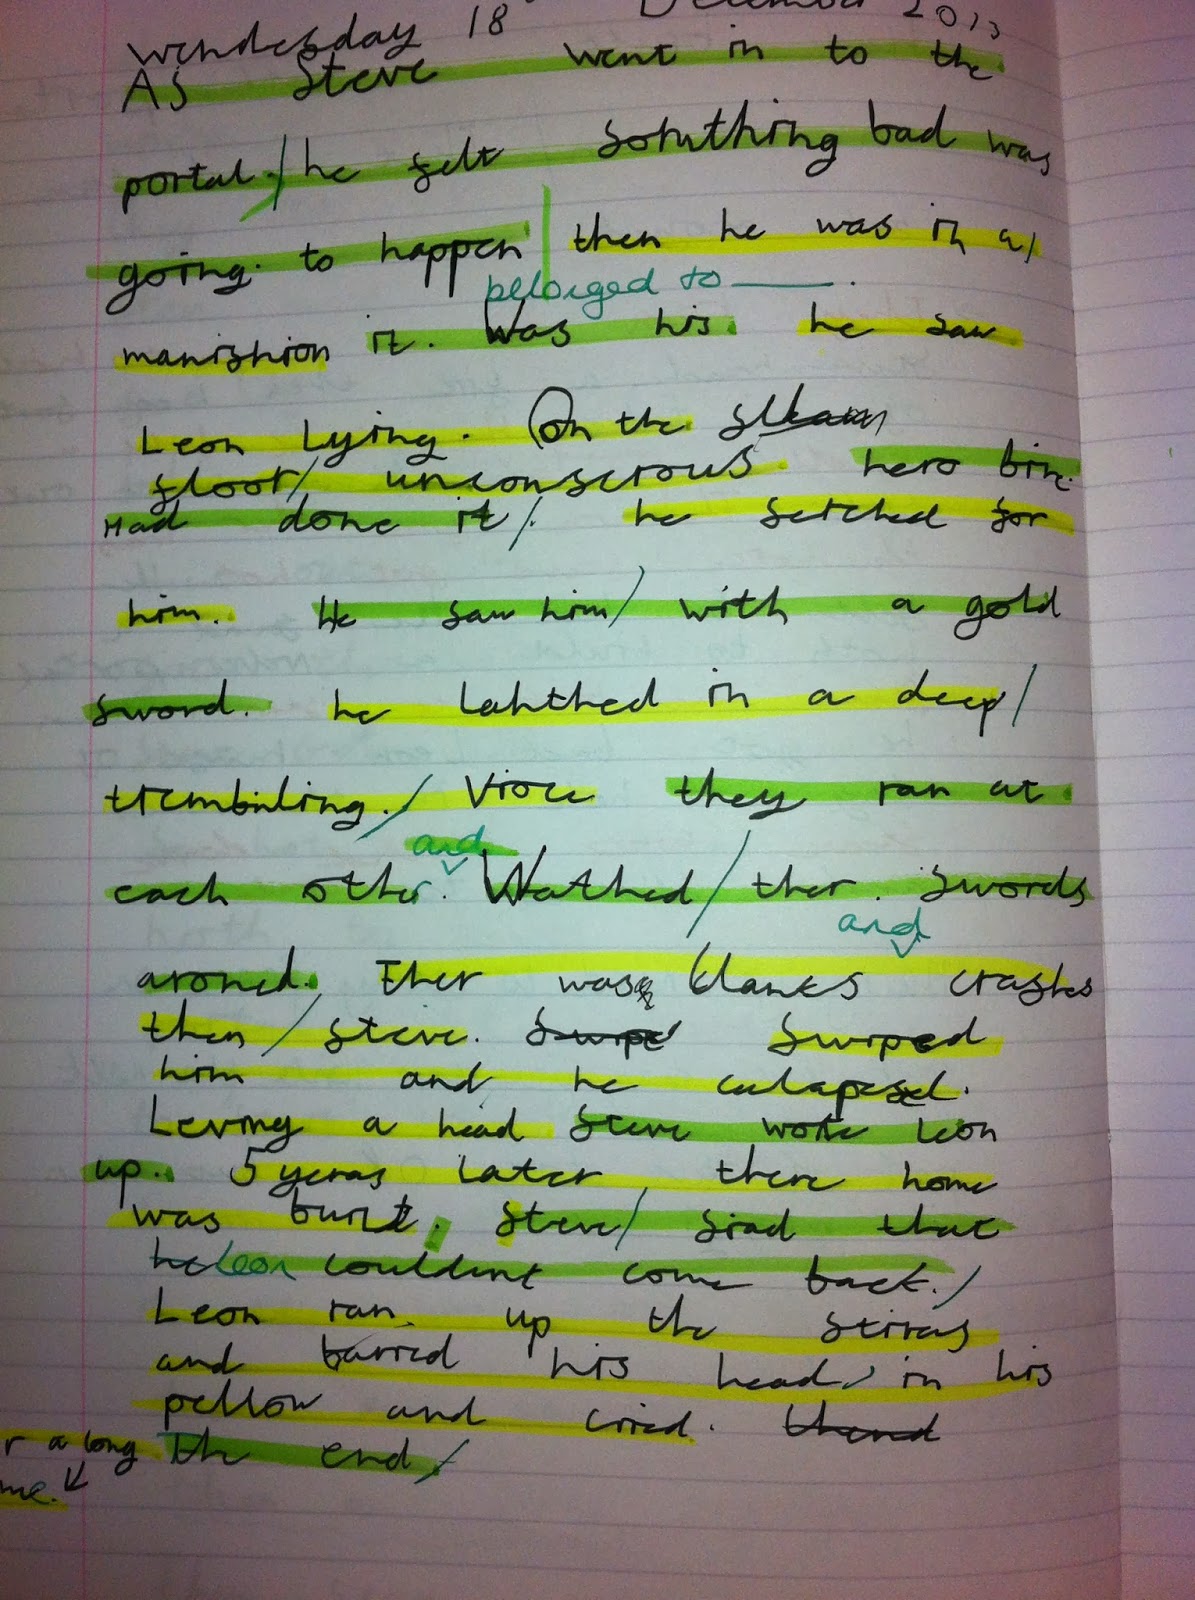 wendesday 18 December 2013
As Steve went in to the
portal / he felt somthing bad was
going. to happen then he was in a
belonged to ——.
manishion it. Was his. he saw
Leon Lying. On the
floor / unconscrous hero brin.
Had done it /. he serched for
him. He saw him / with a gold
sword. he lahthed in a deep /
trembinling. / Vioce they ran at
and
each other. Wathed / ther. Swords
and
aroned. Ther was klanks crashes
then / steve. Swipe Swiped
him and he culapesed.
Leving a head Steve woke leon
up. 5 yeras later there home
was burnt. Steve / siad that
he leon couldent come back. /
Leon ran up the stiras
and barried his head in his
pellow and cried. thend
r a long the end /
me.